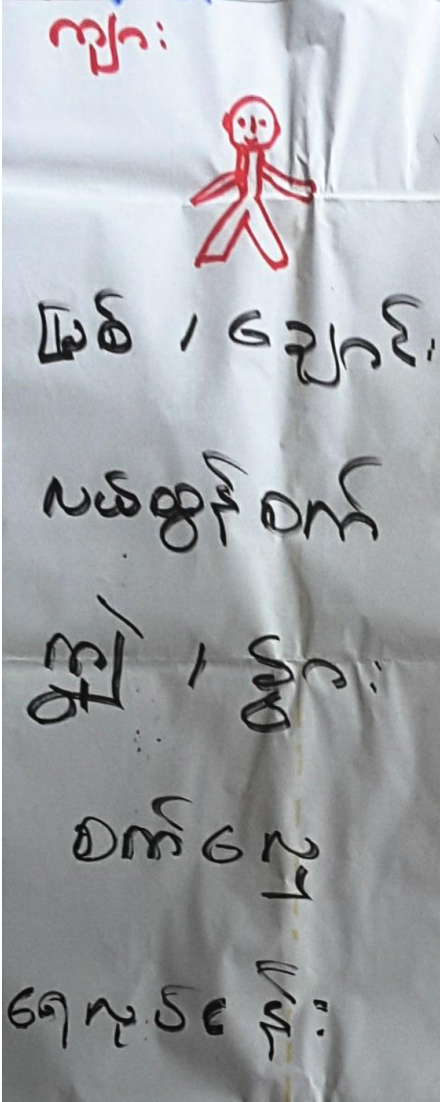 ကျား
မြစ် / ချောင်း
လယ်ထွန်စက်
ကျွဲ / နွား
စက်လှေ
ရေလုပ်ငန်း